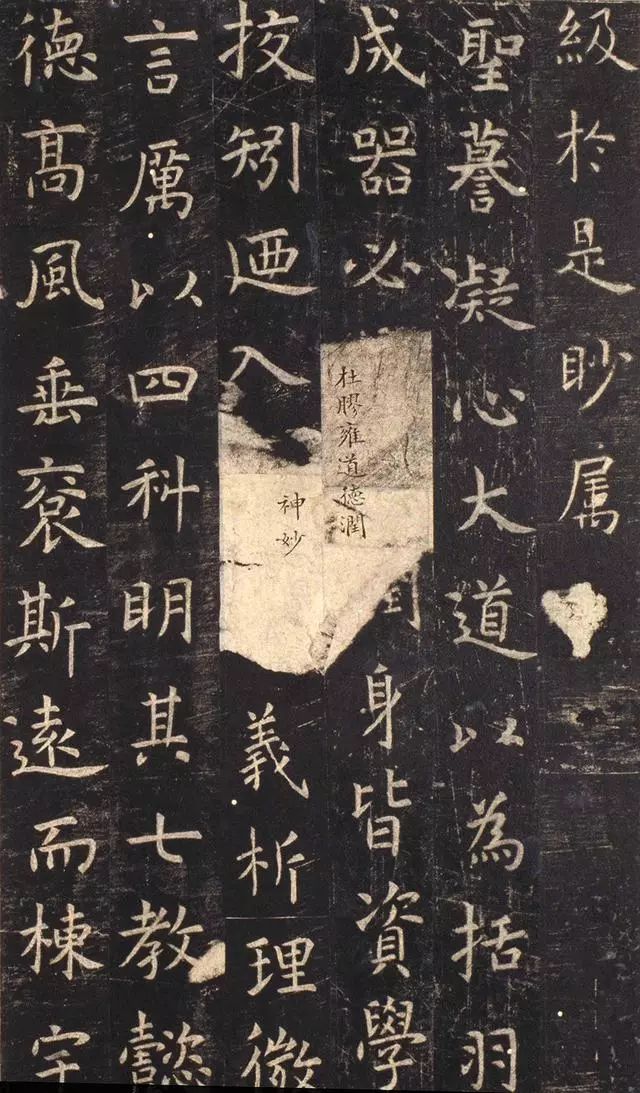 級於是眇属
聖謩凝心大道以為括羽
成器必杜膠雍道德潤身皆資學
挍矧迺入神妙義析理微
言厲以四科明其七教懿
德髙風垂裦斯遠而棟宇